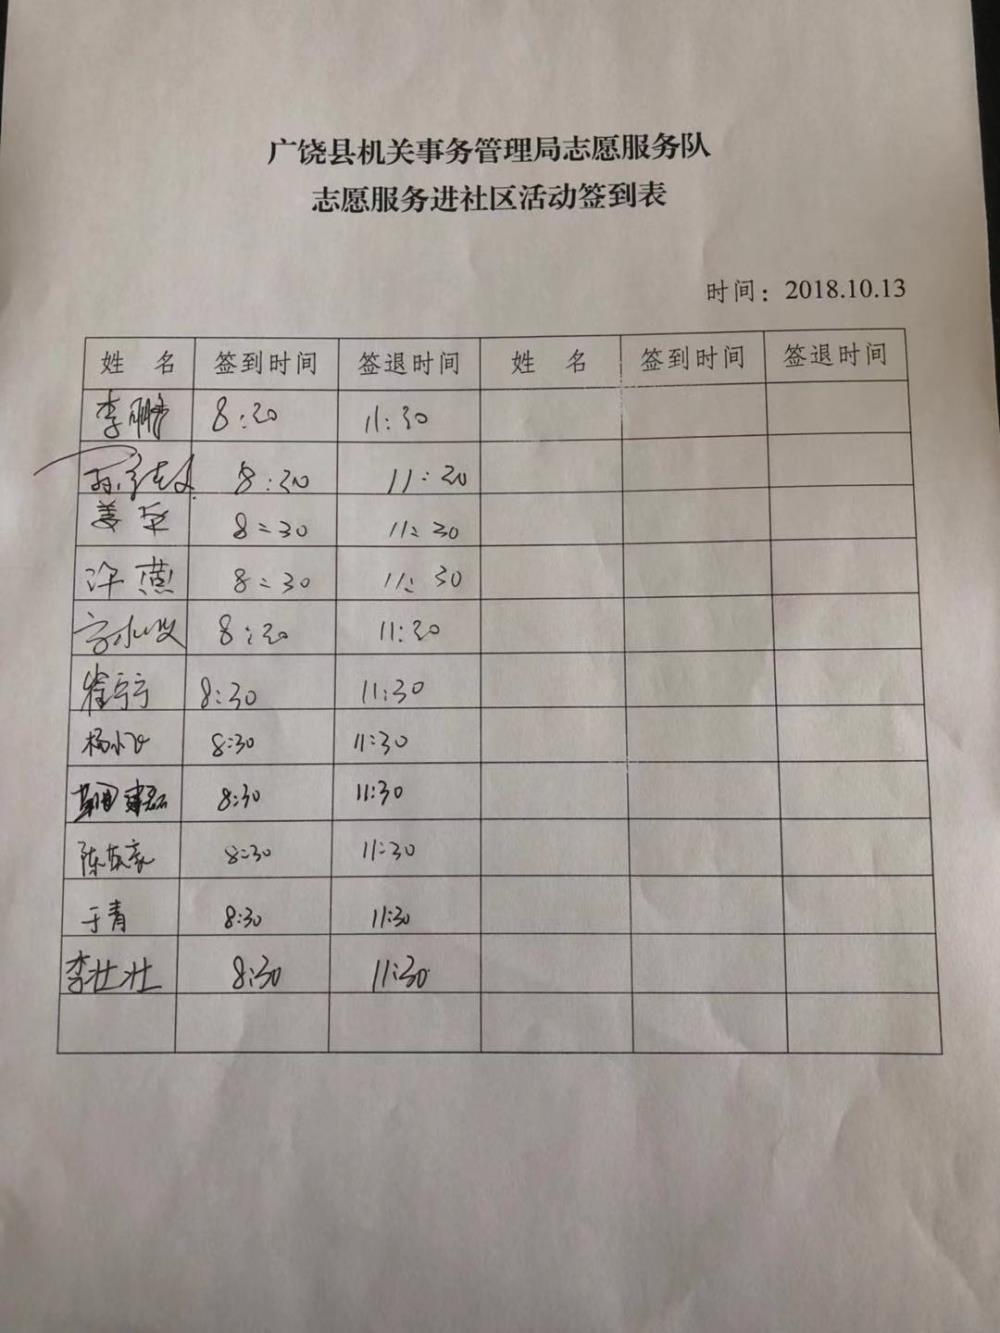 广饶县机关事务管理局志愿服务队
志愿服务进社区活动签到表
时间：2018.10.13
姓 名 签到时间 签退时间 姓 名 签到时间 签退时间
李鹏 8:30 11:30
8:30 11:30
姜 8:30 11:30
许燕 8:30 11:30
8:30 11:30
崔宁宁 8:30 11:30
杨小飞 8:30 11:30
8:30 11:30
陈 8:30 11:30
于青 8:30 11:30
李壮壮 8:30 11:30